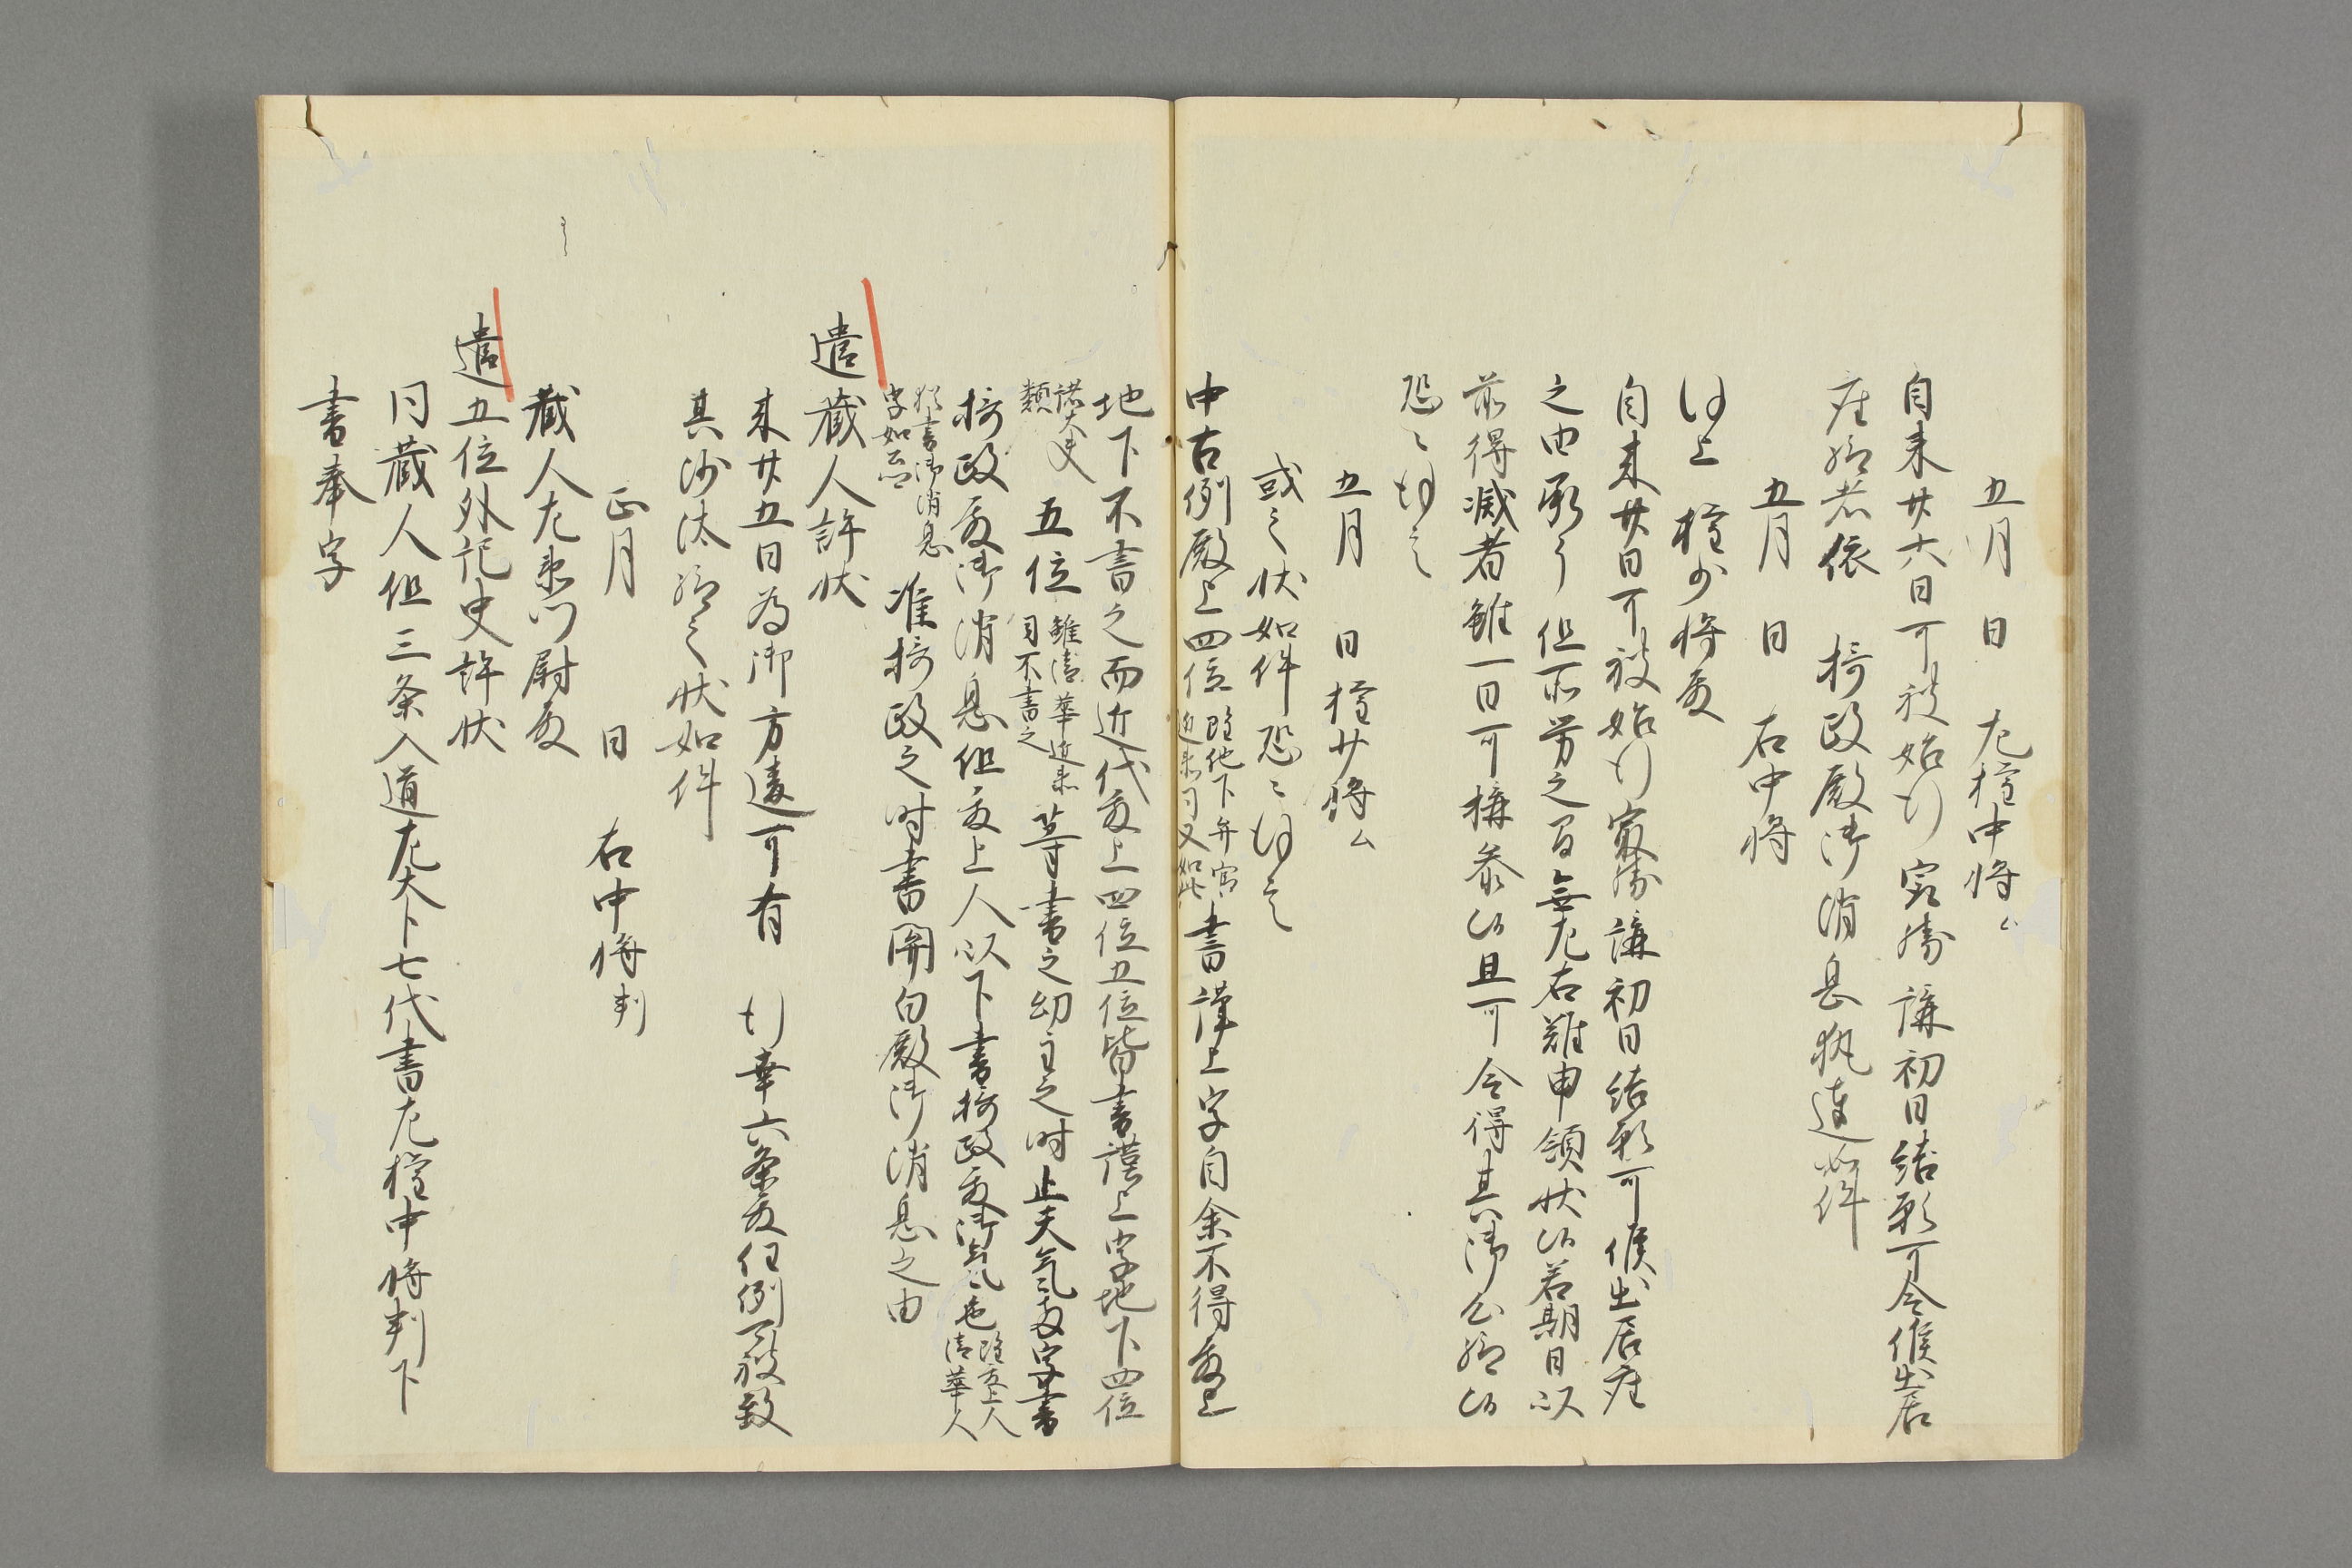 五月　日　左権中将ム
自来廿六日可被始行最勝講初日結番可令候出居
座給者依　摂政殿御消息執達如件
五月　日　右中将
謹上　権少将殿
自来廿日可被始行最勝講初日結番可候出居座
之由承了但所労之間無左右難申領状候若期日以
前得減者雖一日可構参候且可令得其御心給候
恐々謹言
五月　日権少将ム
或之状如件恐々謹言
中古例殿上四位雖地下弁官近来同又如此書謹上字自余不得殿上
地下不書之而近代殿上四位五位皆書謹上字地下四位
諸大夫類五位雖清華近来同不書之等書之幼主之時止天気字書
摂政殿御消息但殿上人以下書摂政殿御気色雖殿上人清華人
猶書御消息字如此准摂政之時書関白殿御消息之由
遣蔵人許状
来廿五日為御方違可有　行幸六条殿任例可被致
其沙汰給之状如件
正月　日　右中将判
蔵人左衛門尉殿
遣五位外記史許状
同蔵人但三条入道左大下七代書左権中将判下
書奉字